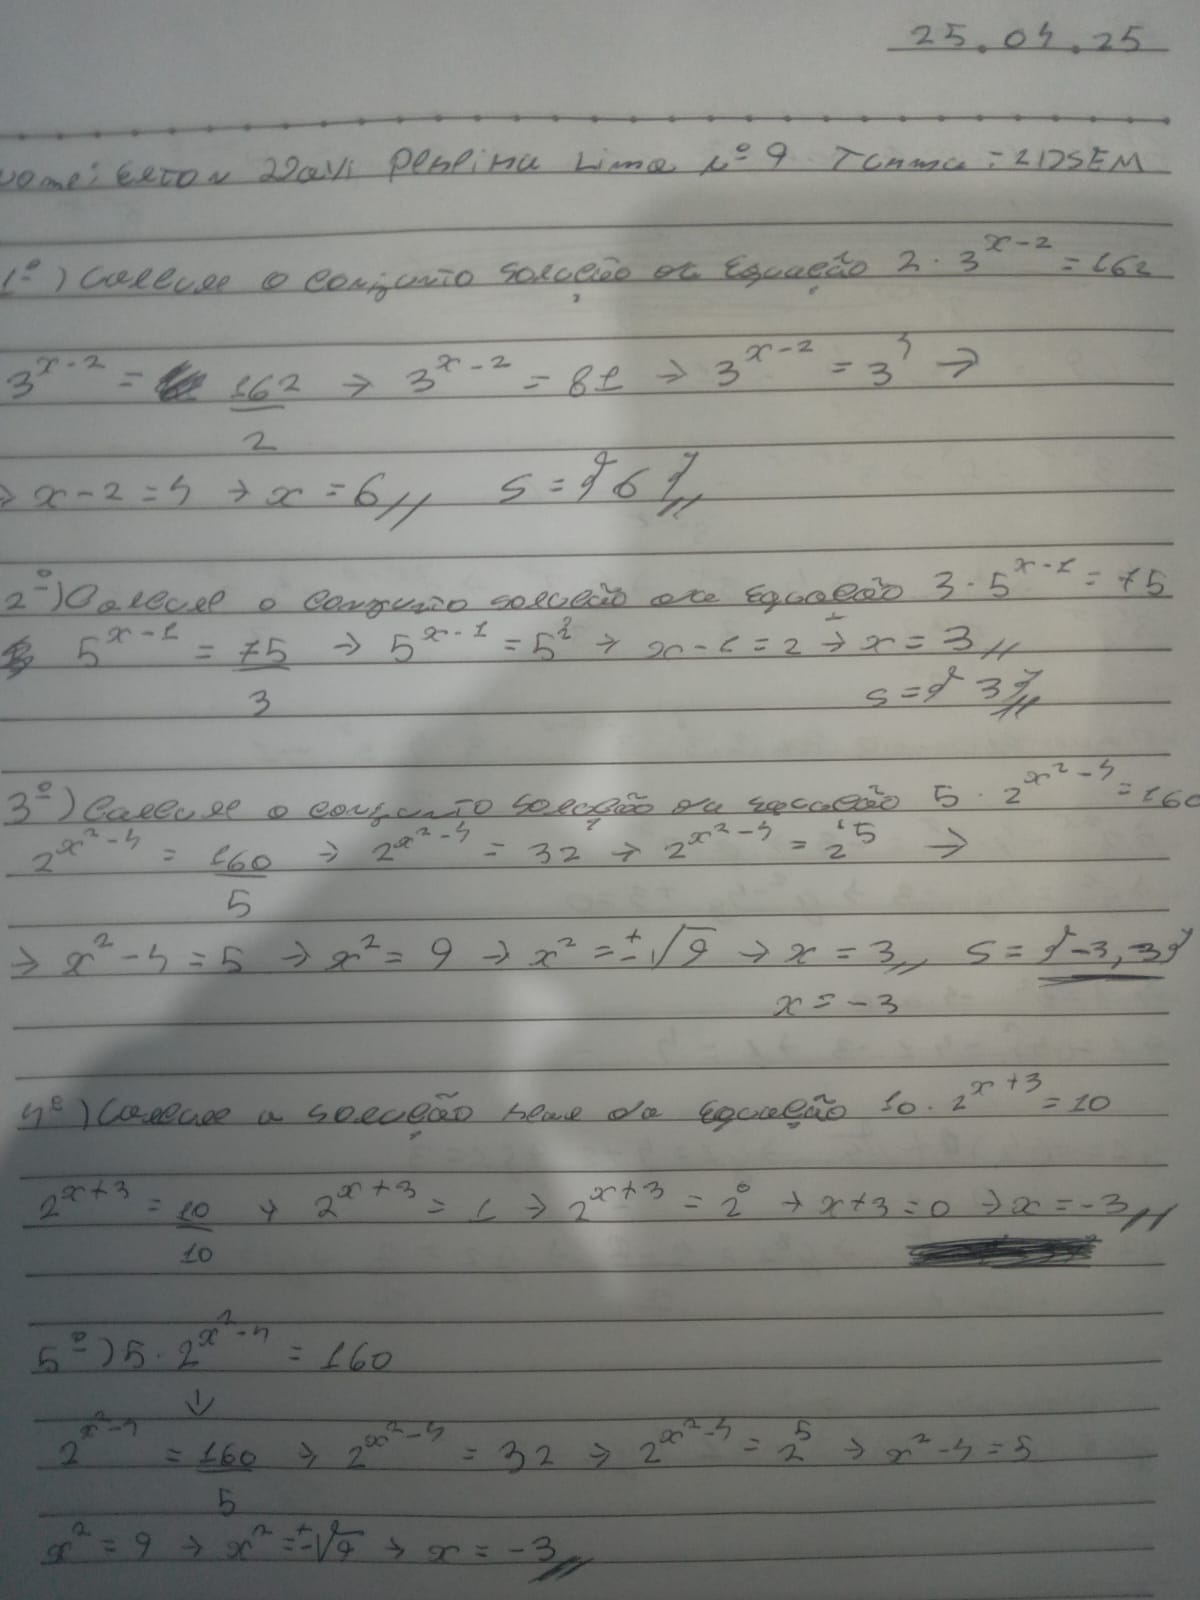 25.04.25
Nome: Davi Lima Nº 9 Turma: 2IDSEM
1º) Calcule o conjunto solução da Equação 2 · 3^(x-2) = 162
3^(x-2) = 162/2 → 3^(x-2) = 81 → 3^(x-2) = 3^4 →
→ x-2=4 → x=6// S={6}//
2º) Calcule o conjunto solução da Equação 3 · 5^(x-1) = 75
5^(x-1) = 75/3 → 5^(x-1) = 5^2 → x-1=2 → x=3//
S={3}//
3º) Calcule o conjunto solução da equação 5 · 2^(x²-4) = 160
2^(x²-4) = 160/5 → 2^(x²-4) = 32 → 2^(x²-4) = 2^5 →
→ x²-4=5 → x²=9 → x²=±√9 → x=3// S={-3, 3}
x=-3
4º) Calcule a solução real da Equação 10 · 2^(x+3) = 10
2^(x+3) = 10/10 → 2^(x+3) = 1 → 2^(x+3) = 2^0 → x+3=0 → x=-3//
5º) 5 · 2^(x²-4) = 160
↓
2^(x²-4) = 160/5 → 2^(x²-4) = 32 → 2^(x²-4) = 2^5 → x²-4=5
x²=9 → x²=±√9 → x=-3//